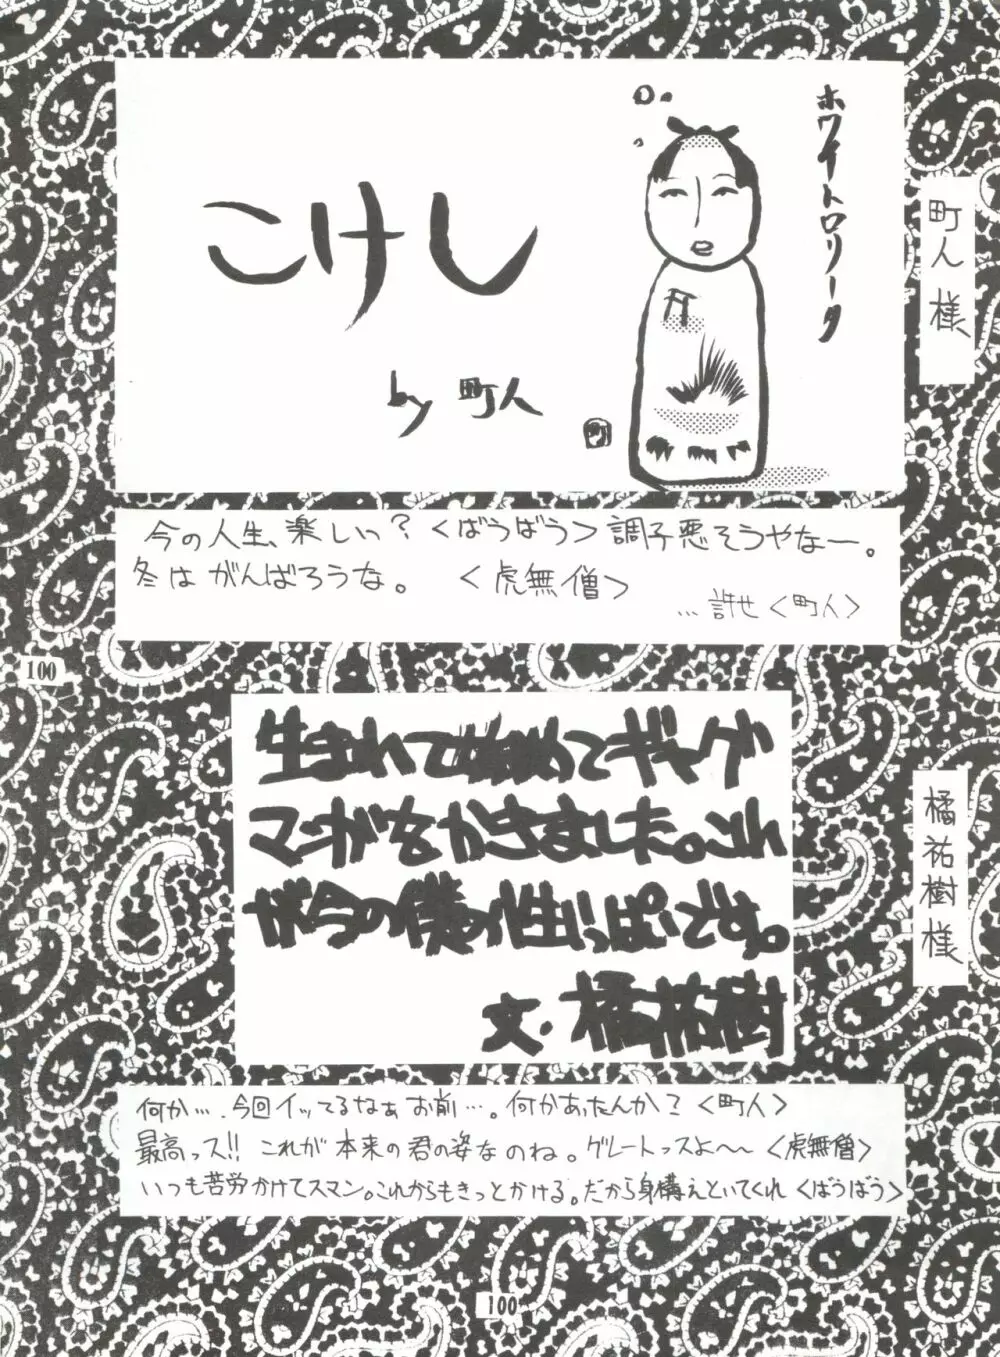 ホワイトロリータ
こけし
by 町人
町
町人様
今の人生、楽しいっ?<ばうばう>調子悪そうやなー。
冬は がんばろうな。 <虎無僧>
…許せ<町人>
100
生まれて始めてギャグ
マンガをかきました。どうも
本名の僕の性っぽいです。
文・橘祐樹
橘祐樹様
何か…今回イッてるなぁ お前…。何かあったんか?<町人>
最高っス!! これが 本来の君の姿なのね。グレートっスよ〜〜<虎無僧>
いつも苦労かけてスマン。これからもきっとかける。だから身構えといてくれ<ばうばう>
100